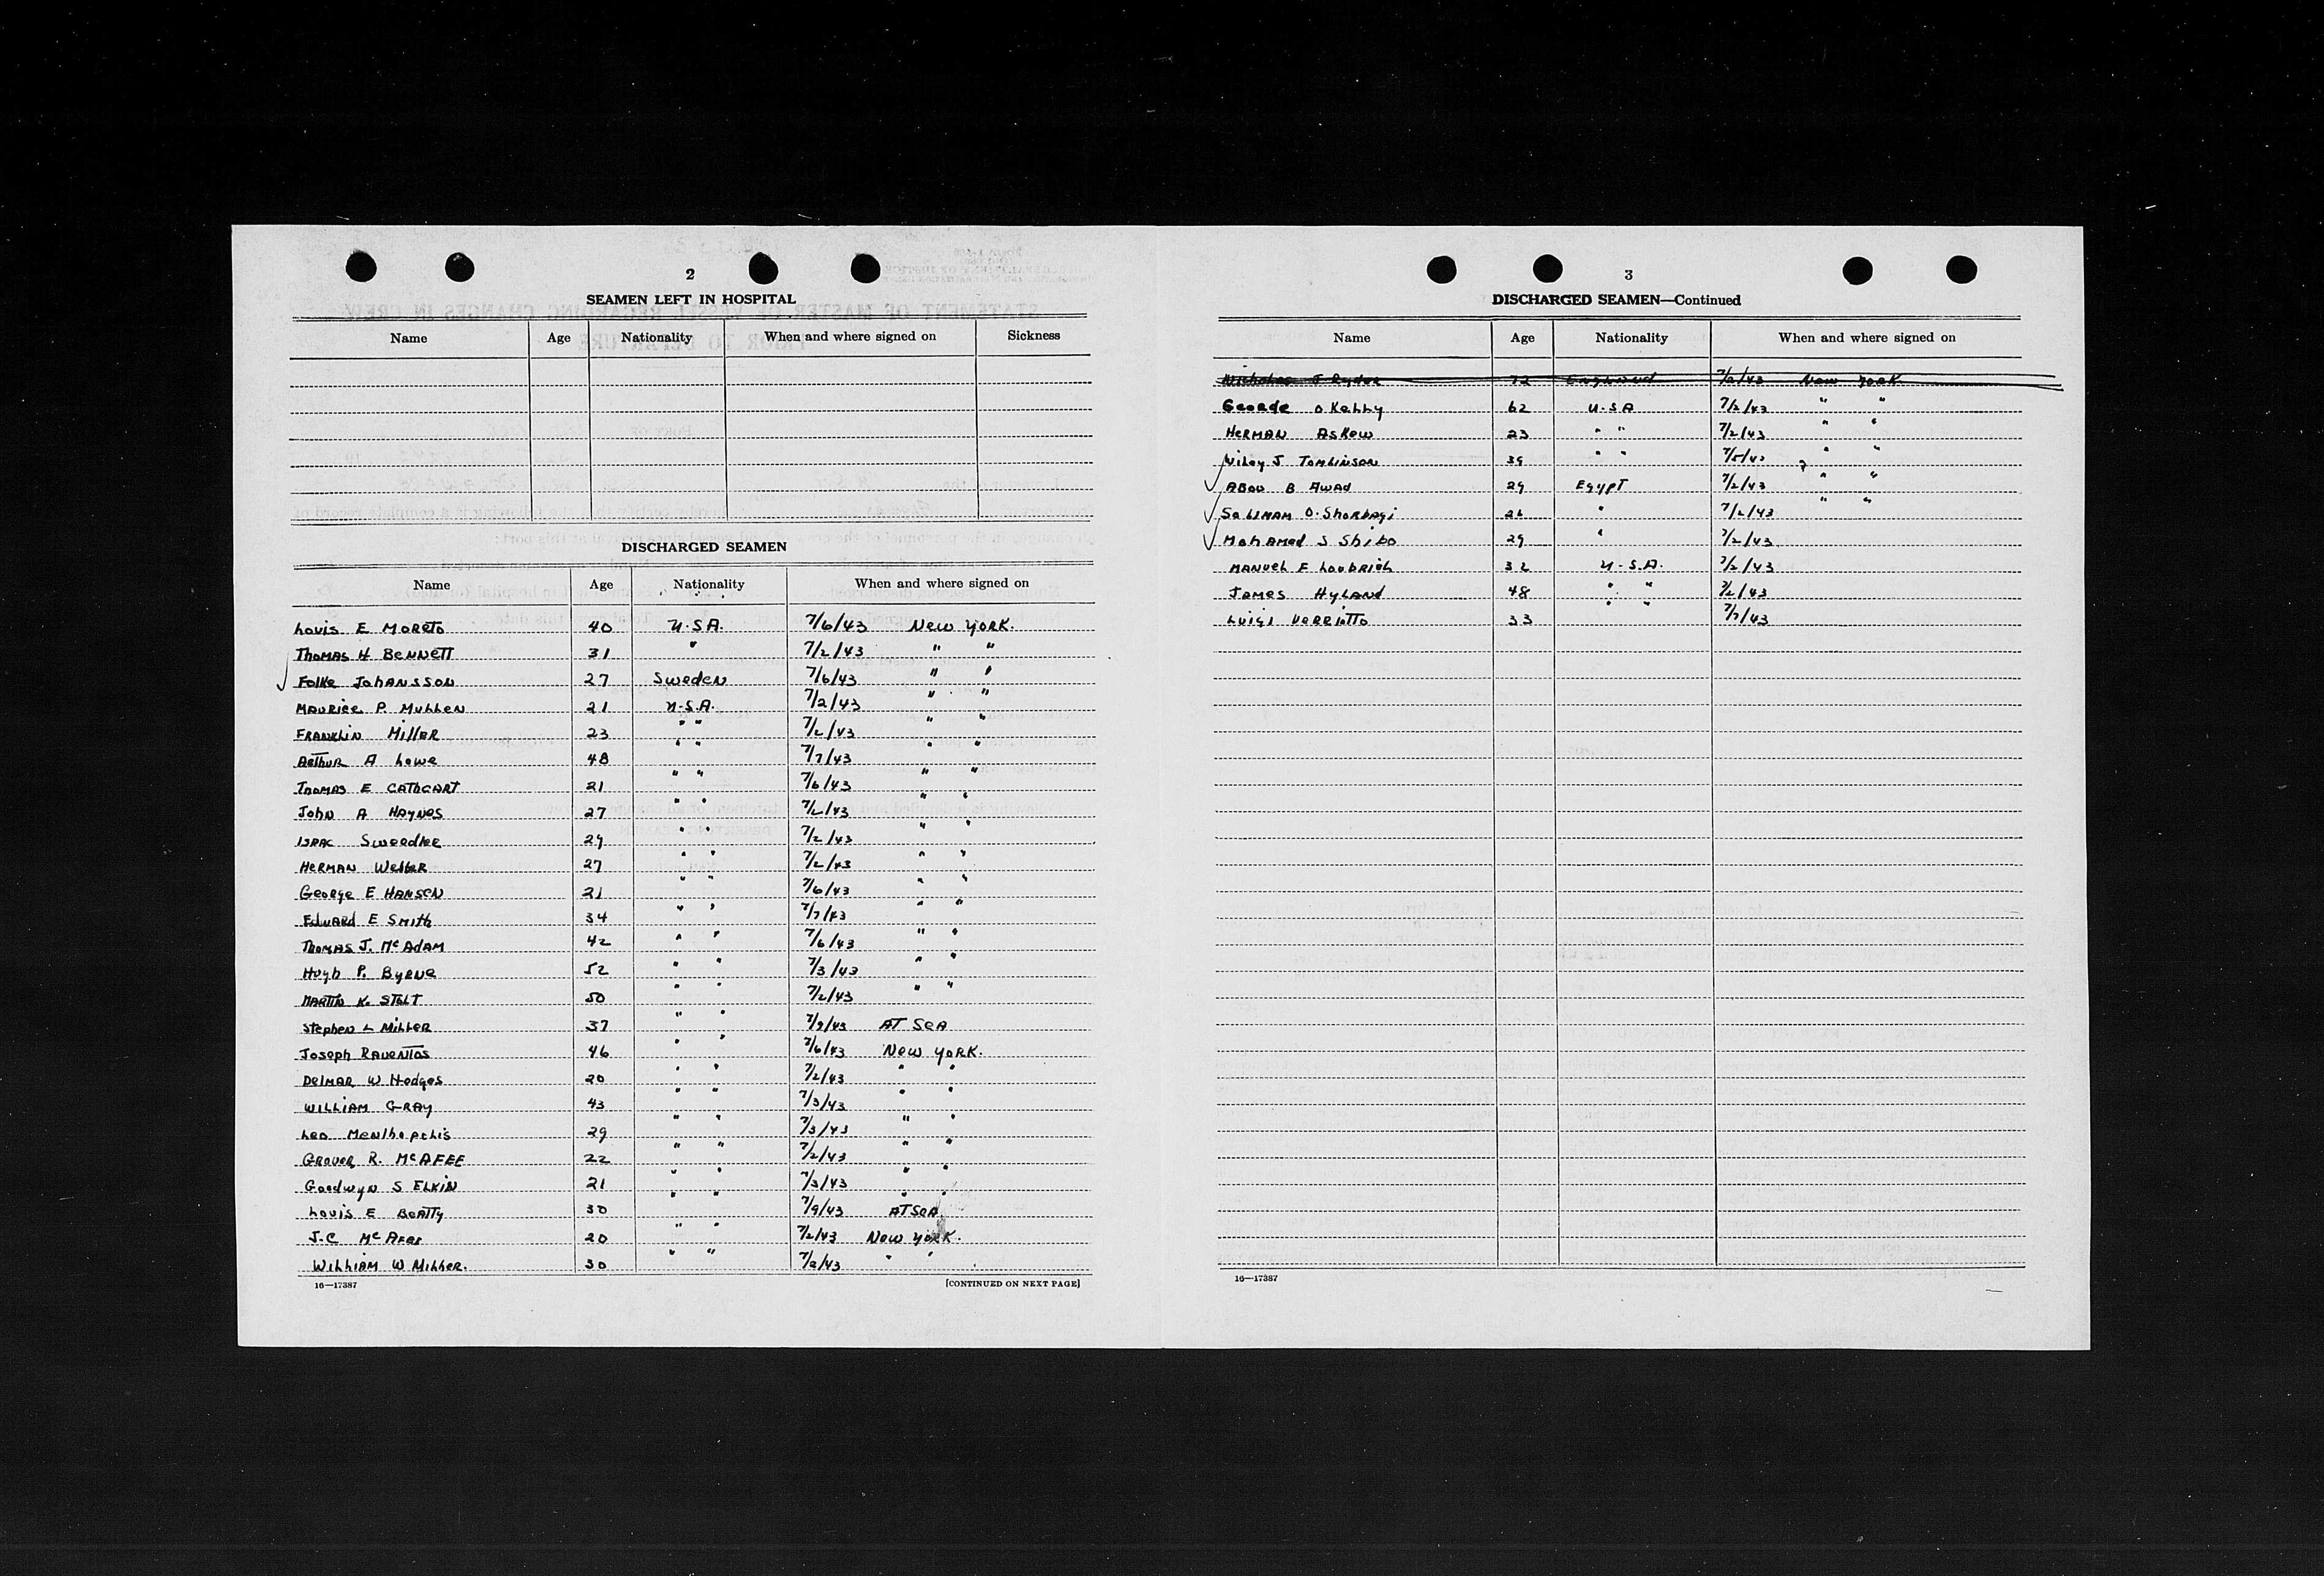 2
SEAMEN LEFT IN HOSPITAL
Name Age Nationality When and where signed on Sickness
DISCHARGED SEAMEN
Name Age Nationality When and where signed on
Louis E Moreto 40 U.S.A. 7/6/43 New York.
Thomas H Bennett 31 " 7/2/43 " "
Folke Johansson 27 Sweden 7/6/43 " "
Maurice P. Mullen 21 U.S.A. 7/2/43 " "
Franklin Miller 23 " " 7/2/43 " "
Arthur A Lowe 48 " " 7/7/43 " "
Thomas E Cathcart 21 " " 7/6/43 " "
John A Haynes 27 " " 7/2/43 " "
Israc Swerdlee 29 " " 7/2/43 " "
Herman Weller 27 " " 7/2/43 " "
George E Hansen 21 " " 7/6/43 " "
Edward E Smith 34 " " 7/7/43 " "
Thomas J. McAdam 42 " " 7/6/43 " "
Hugh P. Byrne 52 " " 7/3/43 " "
Martin K. Stolt 50 " " 7/2/43 " "
Stephen L Miller 37 " " 7/9/43 At Sea
Joseph Raventos 46 " " 7/6/43 New York.
Delmar W Hodges 20 " " 7/2/43 " "
William Gray 43 " " 7/3/43 " "
Leo 29 " " 7/3/43 " "
Grover R. McAfee 22 " " 7/2/43 " "
Goodwyn S Elkin 21 " " 7/3/43 " "
Louis E Beatty 30 " " 7/9/43 At Sea
J.C McAfee 20 " " 7/2/43 New York.
William W Miller. 30 " " 7/2/43 " "
16—17387 [CONTINUED ON NEXT PAGE]
3
DISCHARGED SEAMEN—Continued
Name Age Nationality When and where signed on
Nicholas J Ryder 72 England 7/2/43 New York
George O Kelly 62 U.S.A 7/2/43 " "
Herman Askew 23 " " 7/2/43 " "
Wiley J Tomlinson 39 " " 7/5/43 " "
Abou B Awad 29 Egypt 7/2/43 " "
Soliman O. Shorbagi 26 " 7/2/43 " "
Mohamed S Shibo 29 " 7/2/43
Manuel F Loubriel 32 U.S.A. 7/2/43
James Hyland 48 " " 7/2/43
Luigi Verriotto 33 " " 7/7/43
16—17387